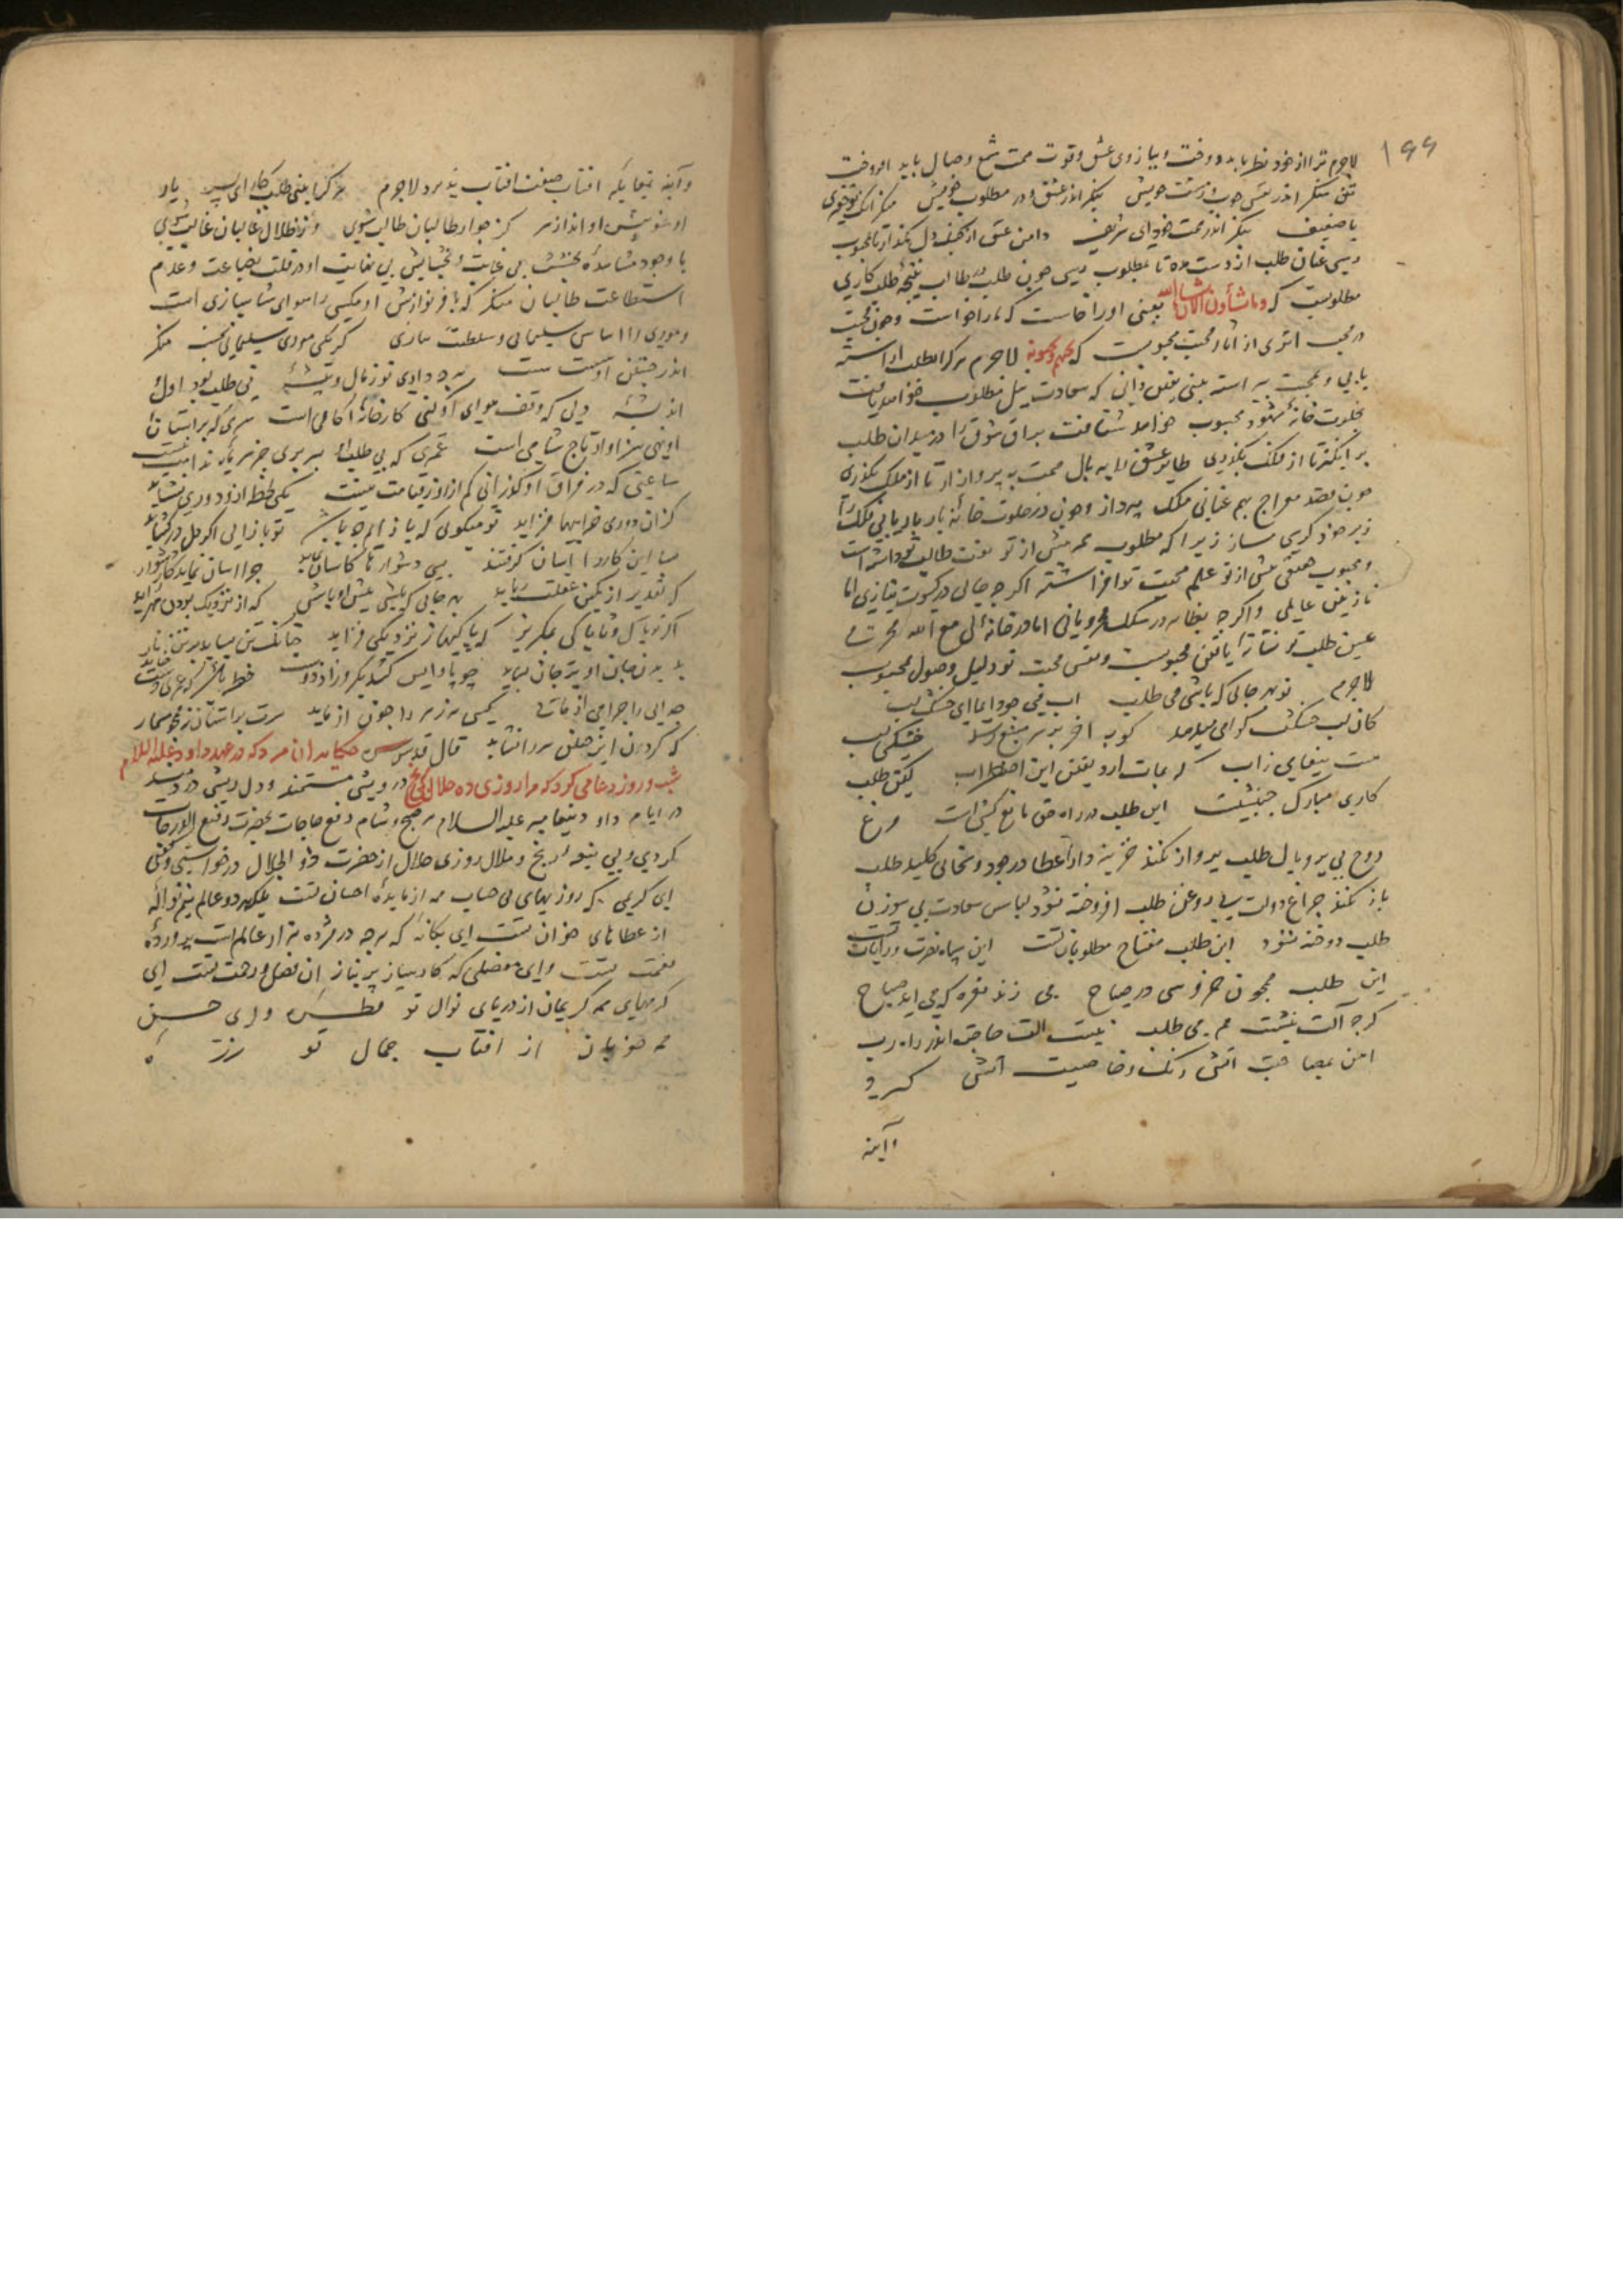 ۱۹۹
لاجرم ترا از خود نظر باید دوخت و ببازوی عشق و قوت محبت شمع وصال باید افروخت
منکر اندر نقش خوب و زشت خویش بنکر اندر عشق و در مطلوب خویش منکر آنک تو حقیری
یا ضعیف بنکر اندر همت خود ای شریف دامن عشق از کف دل مکذار تا بمحبوب
رسی عنان طلب از دست مده تا بمطلوب رسی چون طلب در طالب نتیجه طلب کاری
مطلوبست که وما تشاؤن الا ان یشاء الله یعنی او را خاست که ما را خواست و چون محبت
در محب اثری از اثار محبت محبوبست که یحبهم ویحبونه لاجرم هر کرا بطلب اراسته
یابی و بمحبت پیراسته بینی یقین دانی که سعادت نیل مطلوب خواهد یافت
بخلوت خانه شهود محبوب خواهد شتافت براق شوق را در میدان طلب
بر انکیز تا از فلک بکذری طایر عشق را به بال محبت به پرواز ار تا از ملک بکذری
چون بقصد معراج بهم عنانی ملک پرداز و چون در خلوت خانه یار باریابی فلک را
زیر خود کرسی ساز زیرا که مطلوب هم پیش از تو بوقت طالب تو داشته است
و محبوب حقیقی پیش از تو علم محبت تو افراشته اکرچه حالی در کسوت نیازی اما
نازنین عالمی و اکرچه بظاهر در سلک محرومانی اما در خانه لی مع الله محرمی
عین طلب تو نشانه یافتن محبوبست و نفس محبت تو دلیل وصول محبوب
لاجرم تو بهر حالی که باشی می طلب اب می جو دایما ای خشک لب
کان لب خشکت کواهی میدهد کو به اخر بر سر منبع رسد خشکی لب
هست پیغامی ز اب که بمات ارد یقین این اضطراب لیکن طلب
کاری مبارک جنبشیست این طلب در راه حق مانع کشیست مرغ
روح بی پر و بال طلب پرواز نکند خزینه دار عطا در جود و سخا بی کلید طلب
باز نکند چراغ دولت بی روغن طلب افروخته نشود لباس سعادت بی سوزن
طلب دوخته نشود این طلب مفتاح مطلوبات تست این سپاه نصرت و رایات تست
این طلب همچون خروسی در صباح می زند نعره که می اید صباح
کرچه آلت نیست هم می طلب نیست الت حاجت اندر راه رب
اهن بمصاحبت اتش رنک و خاصیت اتش کیرد
و آینه
و آینه بمقابله افتاب صفت افتاب پذیرد لاجرم هر کرا بینی طلب کار ای پسر یار
او شو پیش او انداز سر کز جوار طالبان طالب شوی وز ظلال غالبان غالب شوی
با وجود مشاهده بخشش بی غایت و بخشایش بی نهایت او در قلت بضاعت و عدم
استطاعت طالبان منکر که بافر نوازش او مکسی را هوای شاهبازی است
و موری را اساس سلیمانی و سلطنت سازی کر یکی موری سلیمانی بجست منکر
اندر جستن او سست سست هر چه داری تو ز مال و پیشه نی طلب بود اول
اندیشه دلی که وقف هوای او کنی کارخانه اکاهی است سری که بر استان
او نهی سزاوار تاج شاهی است عمری که بی طلب او بسر بری جز سرمایه ندامت نیست
ساعتی که در فراق او کذرانی کم از روز قیامت نیست یکی لحظه ازو دوری نشاید
کزان دوری خرابیها فزاید تو میکوی که باز ایم چه باشد تو باز ایی اکر دل در کشاید
بسا این کار را اسان کرفتند بسی دشوارها کاسان نماید چرا اسان نماید کار دشوار
که تقدیر از کمین غفلت رباید به حالی که باشی پیش او باش که از نزدیک بودن مهر زاید
اکر تو پاک و ناپاکی بمکریز که پاکیها ز نزدیکی فزاید چنانک تن بساید بر تن یار
به دیدن جان او بر جان بساید چو پا واپس کشد یکروز از دوست خطر باشد که عمری دست خاید
جدایی را چرا می ازمایی کسی مر زهر را چون ازماید سرت براستان نه همچو مسمار
که کردون این چنین سر را نساید قال قدس سره حکایت ان مرد که در عهد داود علیه السلام
شب و روز دعا می کرد که مرا روزی ده حلال بی رنج درویشی مستمند و دل ریشی دردمند
در ایام داود پیغامبر علیه السلام هر صبح و شام رفع حاجات بحضرت رفیع الدرجات
کردی و بی شیوه رنج و ملال روزی حلال از حضرت ذو الجلال درخواستی و کفتی
ای کریمی که روزیهای بی حساب همه از مایده احسان تست بلکه هر دو عالم نیم نواله
از عطاهای خوان تست ای یکانه که هرچه در هژده هزار عالم است پرورده
نعمت تست و ای مفضلی که کارساز هر نیاز ان فضل و رحمت تست ای
کرمهای همه کریمان از دریای نوال تو قطره و ای حسن
همه خوبان از افتاب جمال تو ذره